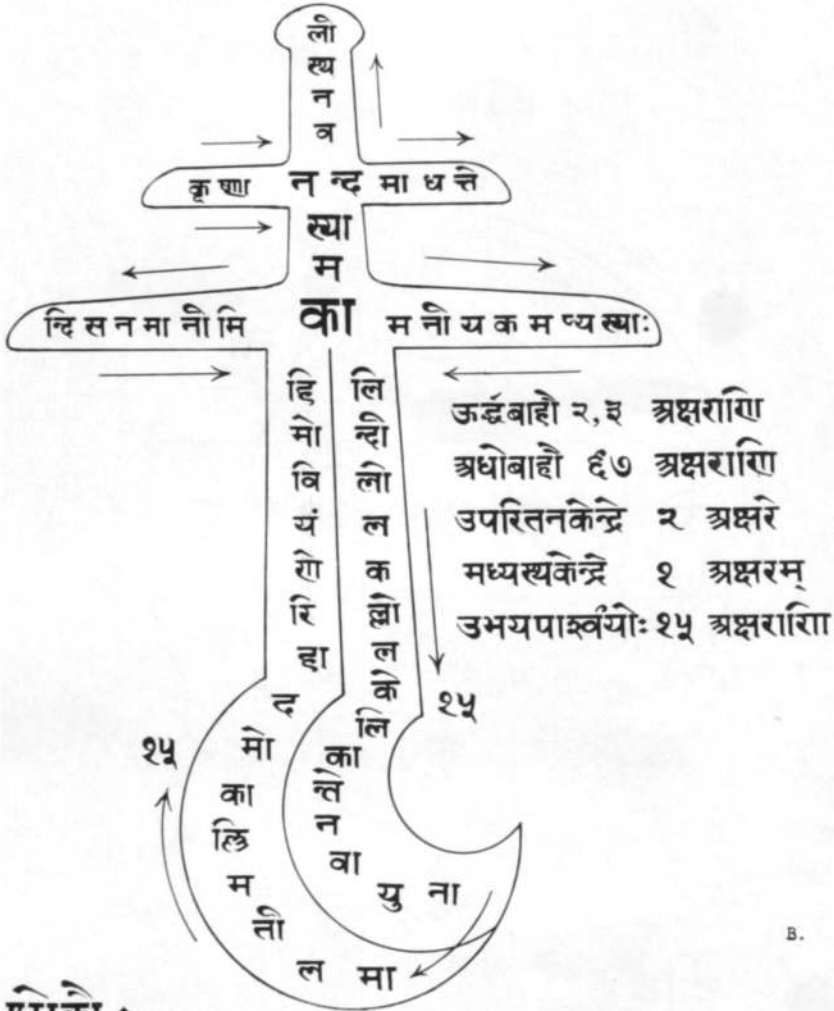 ली
स्थ
न
व
कृष्णा नन्द माधत्ते
स्या
म
न्दि स न मा नी मि का म नी य क म प्य स्याः
हि
मो
वि
यं
रो
रि
हा
द
मो
का
ल्लि
म
ती
ल
मा
लि
न्दी
लो
ल
क
ल्लो
ल
के
लि
का
न्ते
न
वा
यु
ना
ऊर्द्धबाहौ २,३ अक्षराणि
अधोबाहौ ६७ अक्षराणि
उपरितनकेन्द्रे २ अक्षरे
मध्यस्थकेन्द्रे १ अक्षरम्
उभयपार्श्वयोः १५ अक्षराणि
१५
१५
B.